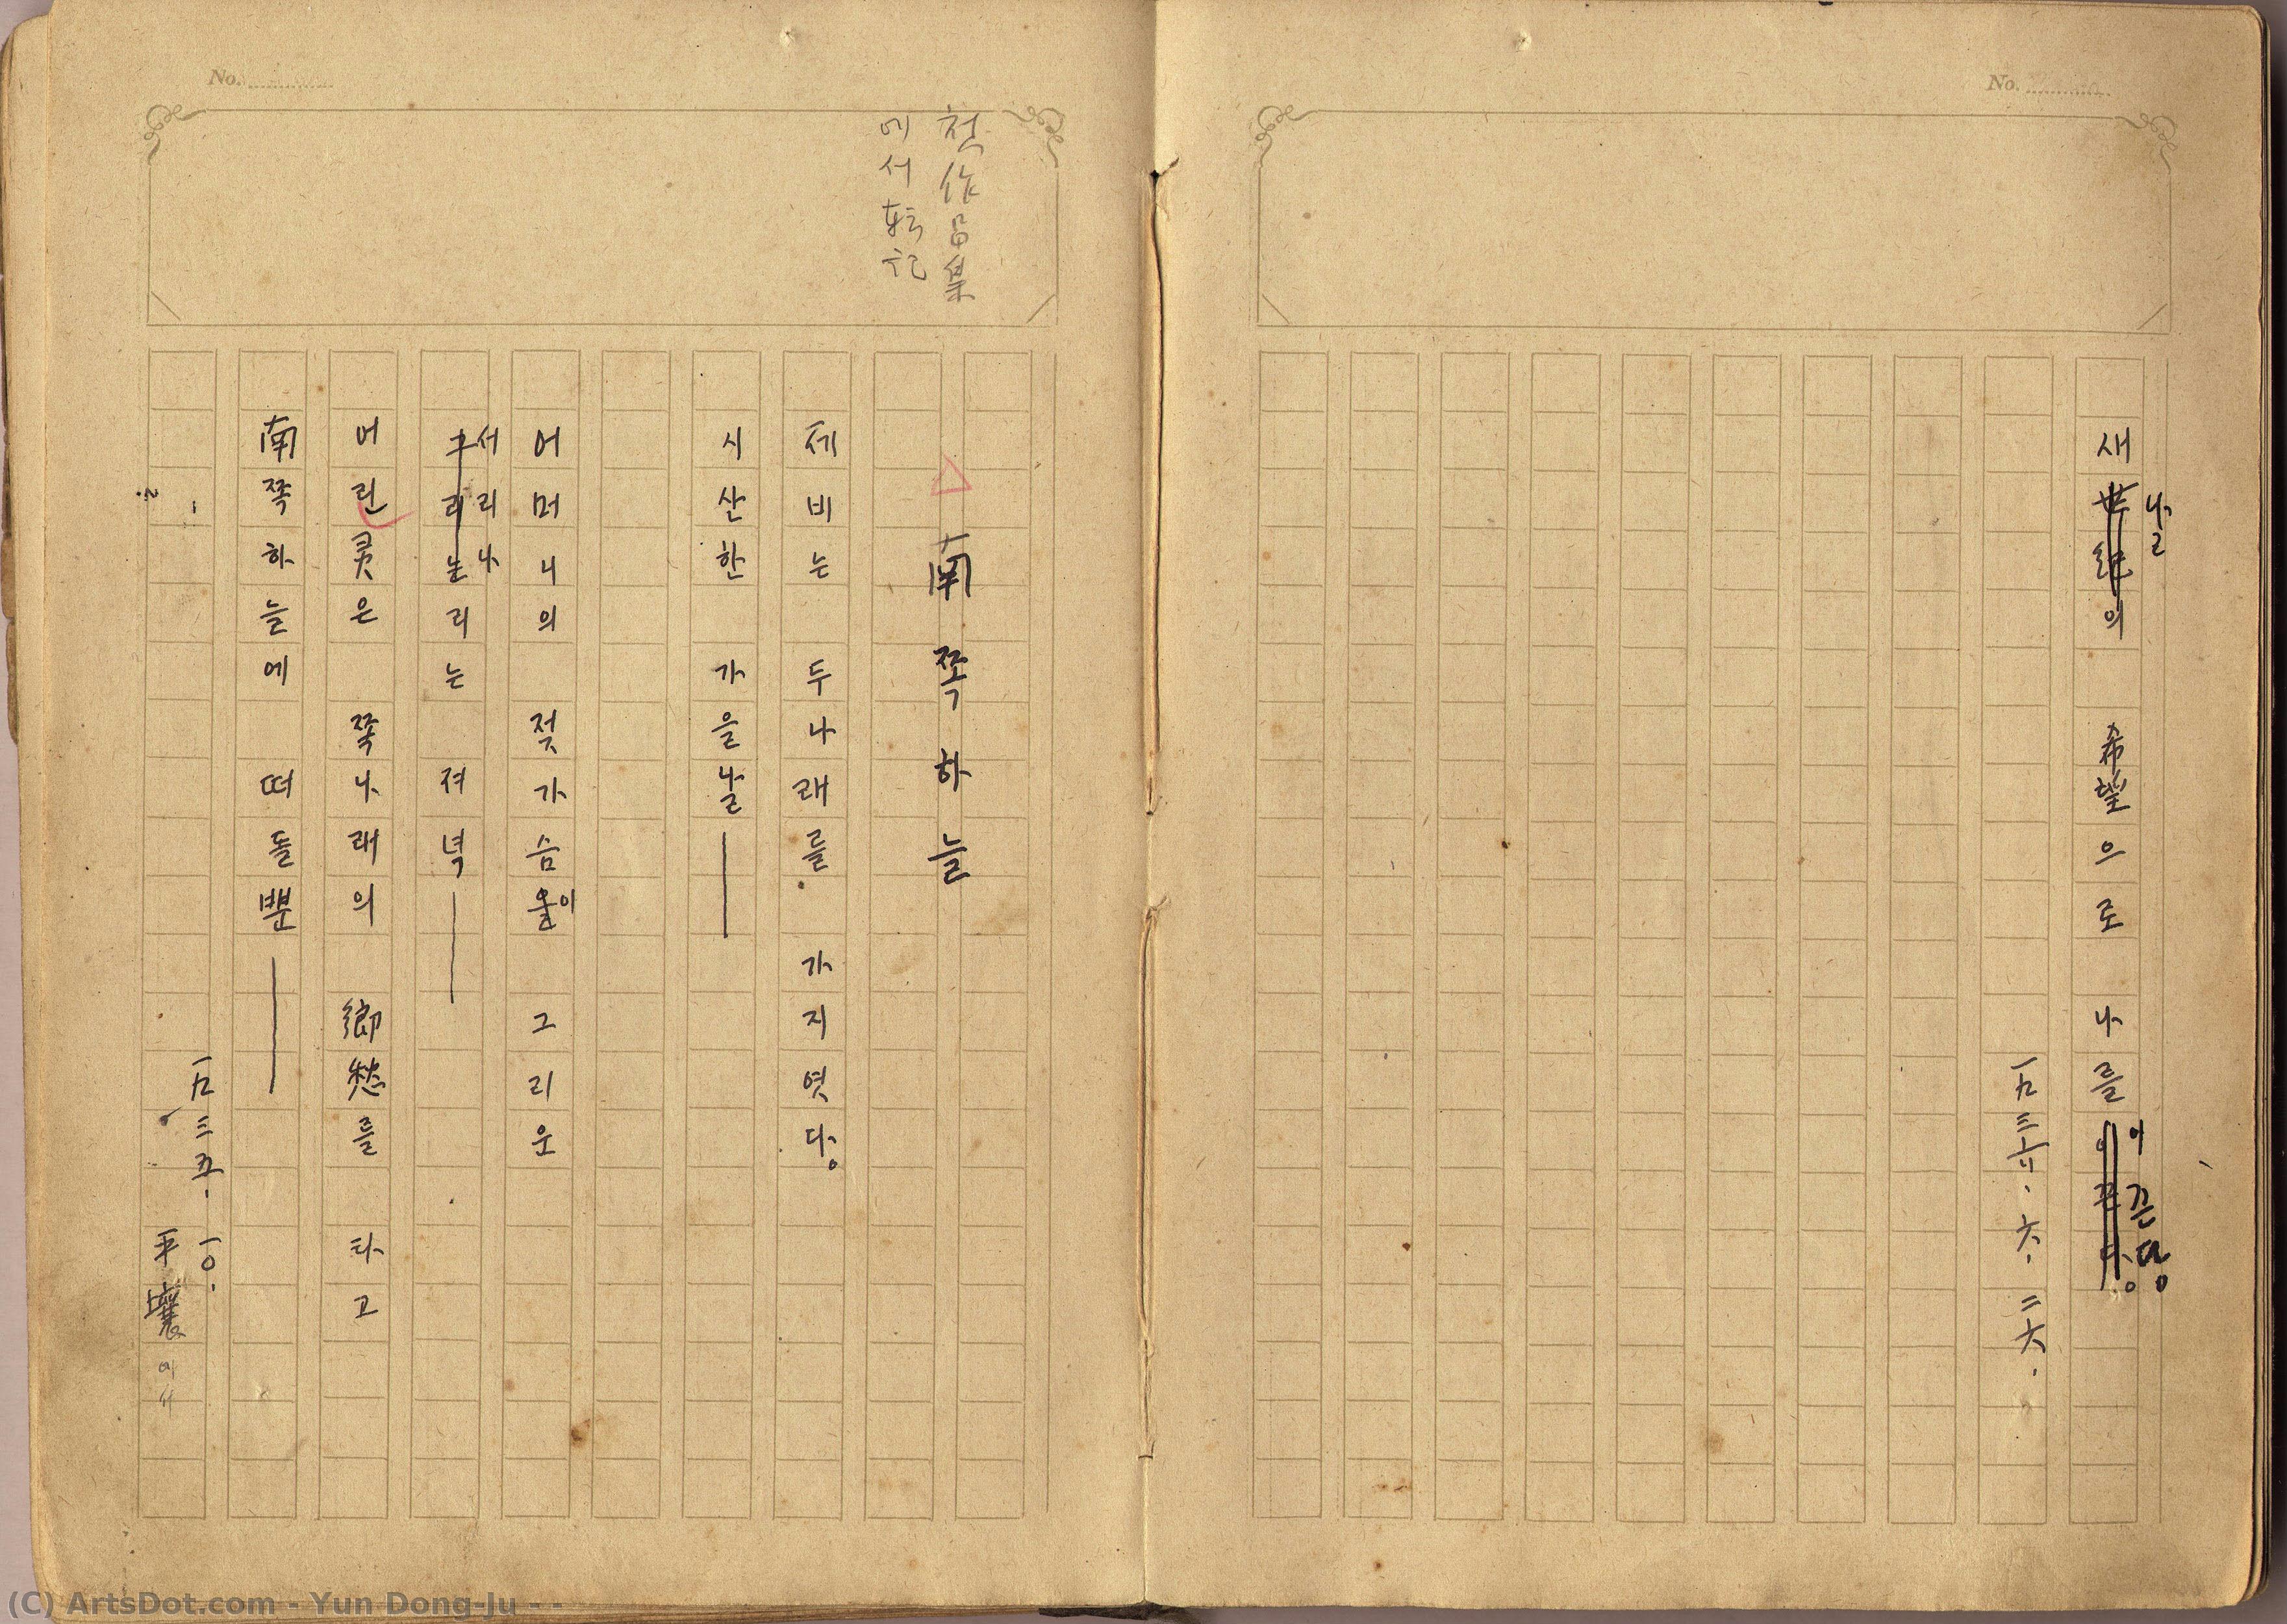 No.
새世紀의 希望으로 나를이끈다。
날
이끈다。
一九三六.六.二六.
No.
첫作品集
에서転記
南쪽하늘
제비는 두나래를 가지엿다。
시산한 가을날——
어머니의 젖가슴을 그리운
이
서리나
리는 져녁——
어린灵은 쪽나래의 鄕愁를 타고
南쪽하늘에 떠돌뿐——
一九三五. 一〇.
平壤에서
(C) ArtsDot.com - Yun Dong-Ju - -